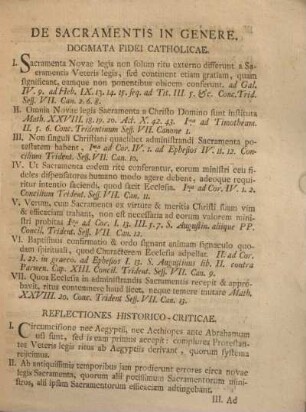 DE SACRAMENTIS IN GENERE.
DOGMATA FIDEI CATHOLICAE.
I. Sacramenta Novae legis non solum ritu externo differunt a Sa-
cramentis Veteris legis, sed continent etiam gratiam, quam
significant, eamque non ponentibus obicem conferunt. ad Gal.
IV. 9. ad Heb. IX. 13. 14. 15. seq. ad Tit. III. 5. &c. Conc. Trid.
Sess. VII. Can. 2. 6. 8.
II. Omnia Novae legis Sacramenta a Christo Domino sunt instituta
Math. XXVIII. 18. 19. 20. Act. X. 42. 43. I.ma ad Timotheum
II. 5. 6. Conc. Tridentinum Sess. VII. Canone 1.
III. Non singuli Christiani quaelibet administrandi Sacramenta po-
testatem habent. I.ma ad Cor. IV. 1. ad Ephesios IV. 11. 12. Con-
cilium Trident. Sess. VII. Can. 10.
IV. Ut Sacramenta eodem rite conferuntur, eorum ministri ceu fide-
les dispensatores humano modo agere debent, adeoque requi-
ritur intentio faciendi, quod facit Ecclesia. I.ma ad Cor. IV. 1. 2.
Concilium Trident. Sess. VII. Can. 11.
V. Verum, cum Sacramenta ex virtute & meritis Christi suam vim
& efficaciam trahant, non est necessaria ad eorum valorem mini-
stri probitas I.ma ad Cor. I. 13. III. 5. 7. S. Augustin. aliique PP.
Concil. Trident. Sess. VII. Can. 12.
VI. Baptismus confirmatio & ordo signant animam signaculo quo-
dam spirituali, quod Characterem Ecclesia adpellat. II. ad Cor.
I. 22. in graeco. ad Ephesios I. 13. S. Augustinus lib. II. contra
Parmen. Cap. XIII. Concil. Trident. Sess. VII. Can. 9.
VII. Quos Ecclesia in administrandis Sacramentis recepit & appro-
bavit, ritus contemnere haud licet, neque temere mutare Math.
XXVIII. 20. Conc. Trident Sess. VII. Can. 13.
REFLECTIONES HISTORICO-CRITICAE.
I. Circumcisione nec Aegyptii, nec Aethiopes ante Abrahamum
usi sunt, sed is eam primus accepit: complures Protestan-
tes Veteris legis ritus ab Aegyptiis derivant, quorum systema
reiicimus.
II. Ab antiquissimis temporibus jam prodierunt errores circa novae
legis Sacramenta, quorum alii potissimum Sacramentorum mini-
stros, alii ipsam Sacramentorum efficaciam adtingebant.
III. Ad